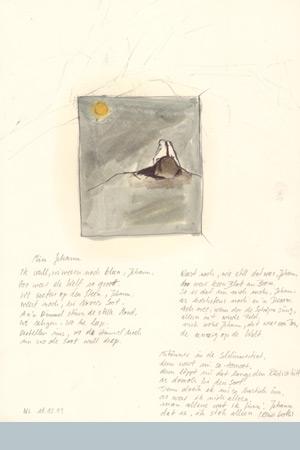 Min Jehann
Ik wull, wi weern noch kleen, Jehann,
Dor weer de Welt so groot.
Wi seeten op den Steen, Jehann,
weest noch, bi Nawers Soot.
An'n Himmel stille Maan,
wi sehgen, wo he leep,
un wo de Soot wull deep.
Weest noch, wie still dat weer, Jehann,
Dor weer keen Blatt an Boom.
So is dat nu nich mehr, Jehann,
as höchstens noch in Droom.
Och nee, wenn dor de Schäper sung,
alleen int wiede Feld,
nich wohr, Jehann, dat weer en Ton,
de eenzig op de Welt.
Mitünner in de Schummertiet,
denn ward mi so to moot,
denn löppt mi dat langs den Rüch so hitt
as domols bi den Soot.
Denn dreih ik mi so hastich üm,
as weer ik nich alleen,
man allens wat ik finn, Jehann
dat is, ik stoh alleen.